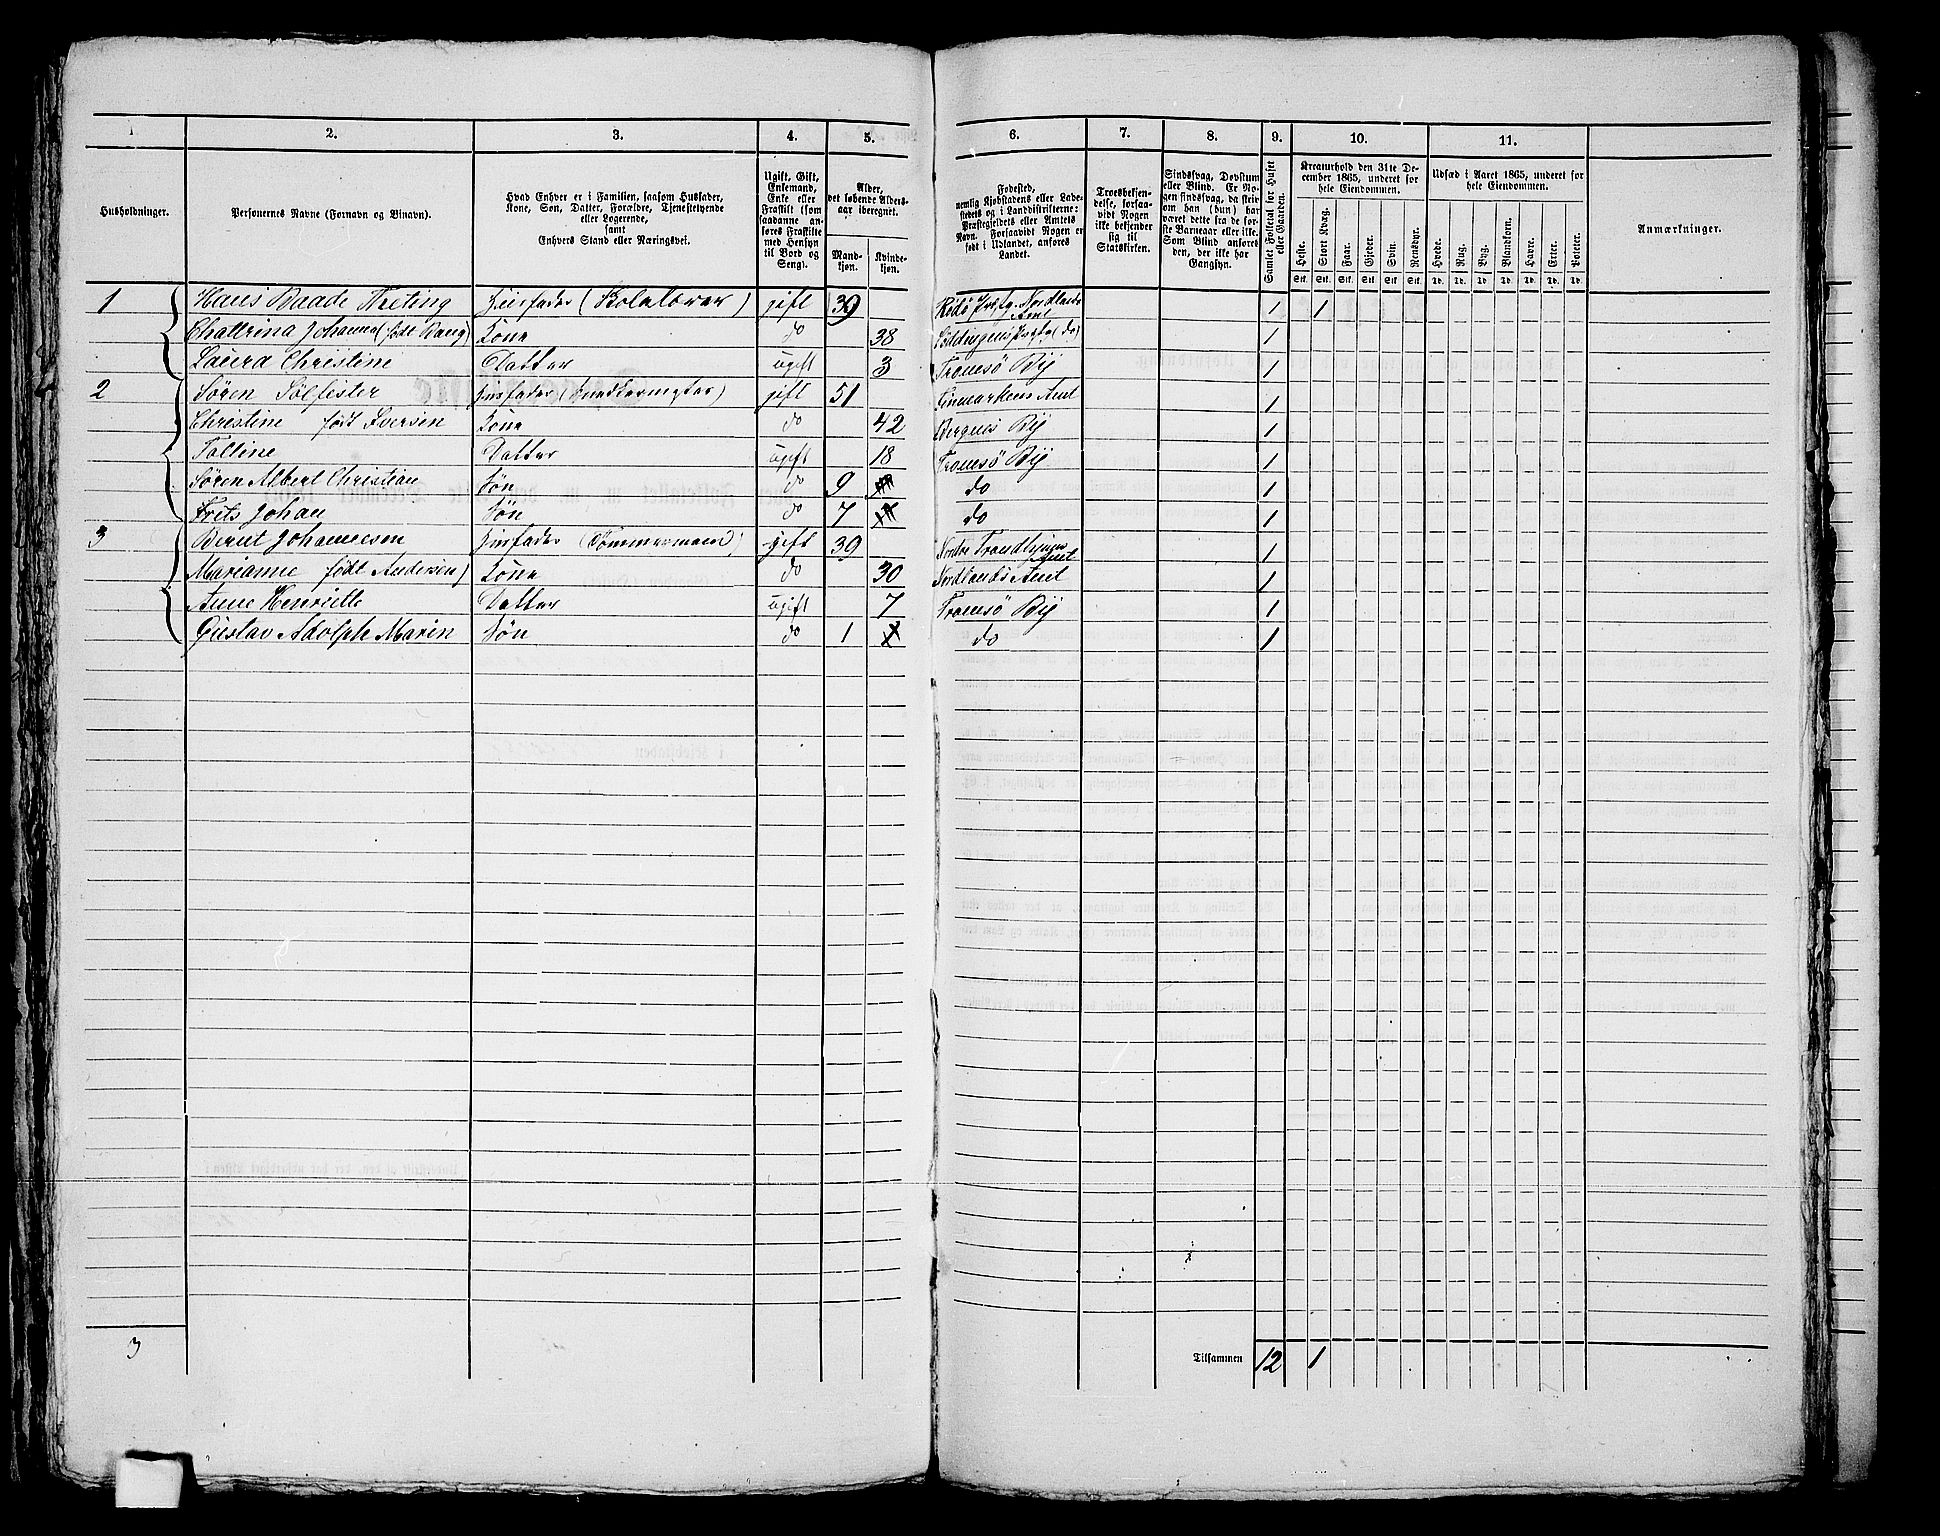 1 2. 3. 4. 5. 6. 7. 8. 9. 10. 11.
Husholdninger.
Personernes Navne (Fornavn og Binavn).
Hvad Enhver er i Familien, saasom Husfader,
Kone, Søn, Datter, Forældre, Tjenestetyende
eller Logerende,
samt
Enhvers Stand eller Næringsvei.
Ugift, Gift,
Enkemand,
Enke eller
Fraskilt (som
saadanne an-
føres Fraskilte
med Hensyn
til Bord og
Seng).
Alder,
det løbende Alders-
aar iberegnet.
Mand-
kjøn.
Kvinde-
kjøn.
Fødested,
nemlig Kjøbstadens eller Lade-
stedets og i Landdistrikterne:
Præstegjeldets eller Amtets
Navn. Forsaavidt Nogen er
født i Udlandet, anføres
Landet.
Troesbekjen-
delse, forsaa-
vidt Nogen
ikke bekjender
sig til
Statskirken.
Sindssvag, Døvstum
eller Blind. Er No-
gen sindssvag, da skri-
ves om han (hun) har
været dette fra de før-
ste Barneaar eller ikke.
Som Blind anføres
den, der ikke har
Gangsyn.
Samlet Folketal for Huset
eller Gaarden.
Kreaturhold den 31te De-
cember 1865, underet for
hele Eiendommen.
Heste. Stort Kvæg. Faar. Gjeder. Svin. Rensdyr.
Stk. Stk. Stk. Stk. Stk. Stk.
Udsæd i Aaret 1865, underet for
hele Eiendommen.
Hvede. Rug. Byg. Blandkorn. Havre. Erter. Poteter.
Td. Td. Td. Td. Td. Td. Td.
Anmærkninger.
1 Hans Baade Husfader gift 39 Rödö Nordlands Amt 1 1
Johanna (født Bang) Kone do 38 (do) 1
Laura Christine Datter ugift 3 Tromsö By 1
2 Sören Sölfester Husfader gift 51 Finmarkens Amt 1
Christine født Iversen Kone do 42 Bergens By 1
Datter ugift 18 Tromsö By 1
Sören Albert Christian Søn do 9 do 1
Frits Johan Søn do 7 do 1
3 Bernt Johannesen Husfader (Tömmermand) gift 39 Nordre Trondhjems Amt 1
Marianne født Andersen) Kone do 30 Nordlands Amt 1
Anne Henriette Datter ugift 7 Tromsö By 1
Gustav Adolph Marin Søn do 1 do 1
3 Tilsammen 12 1